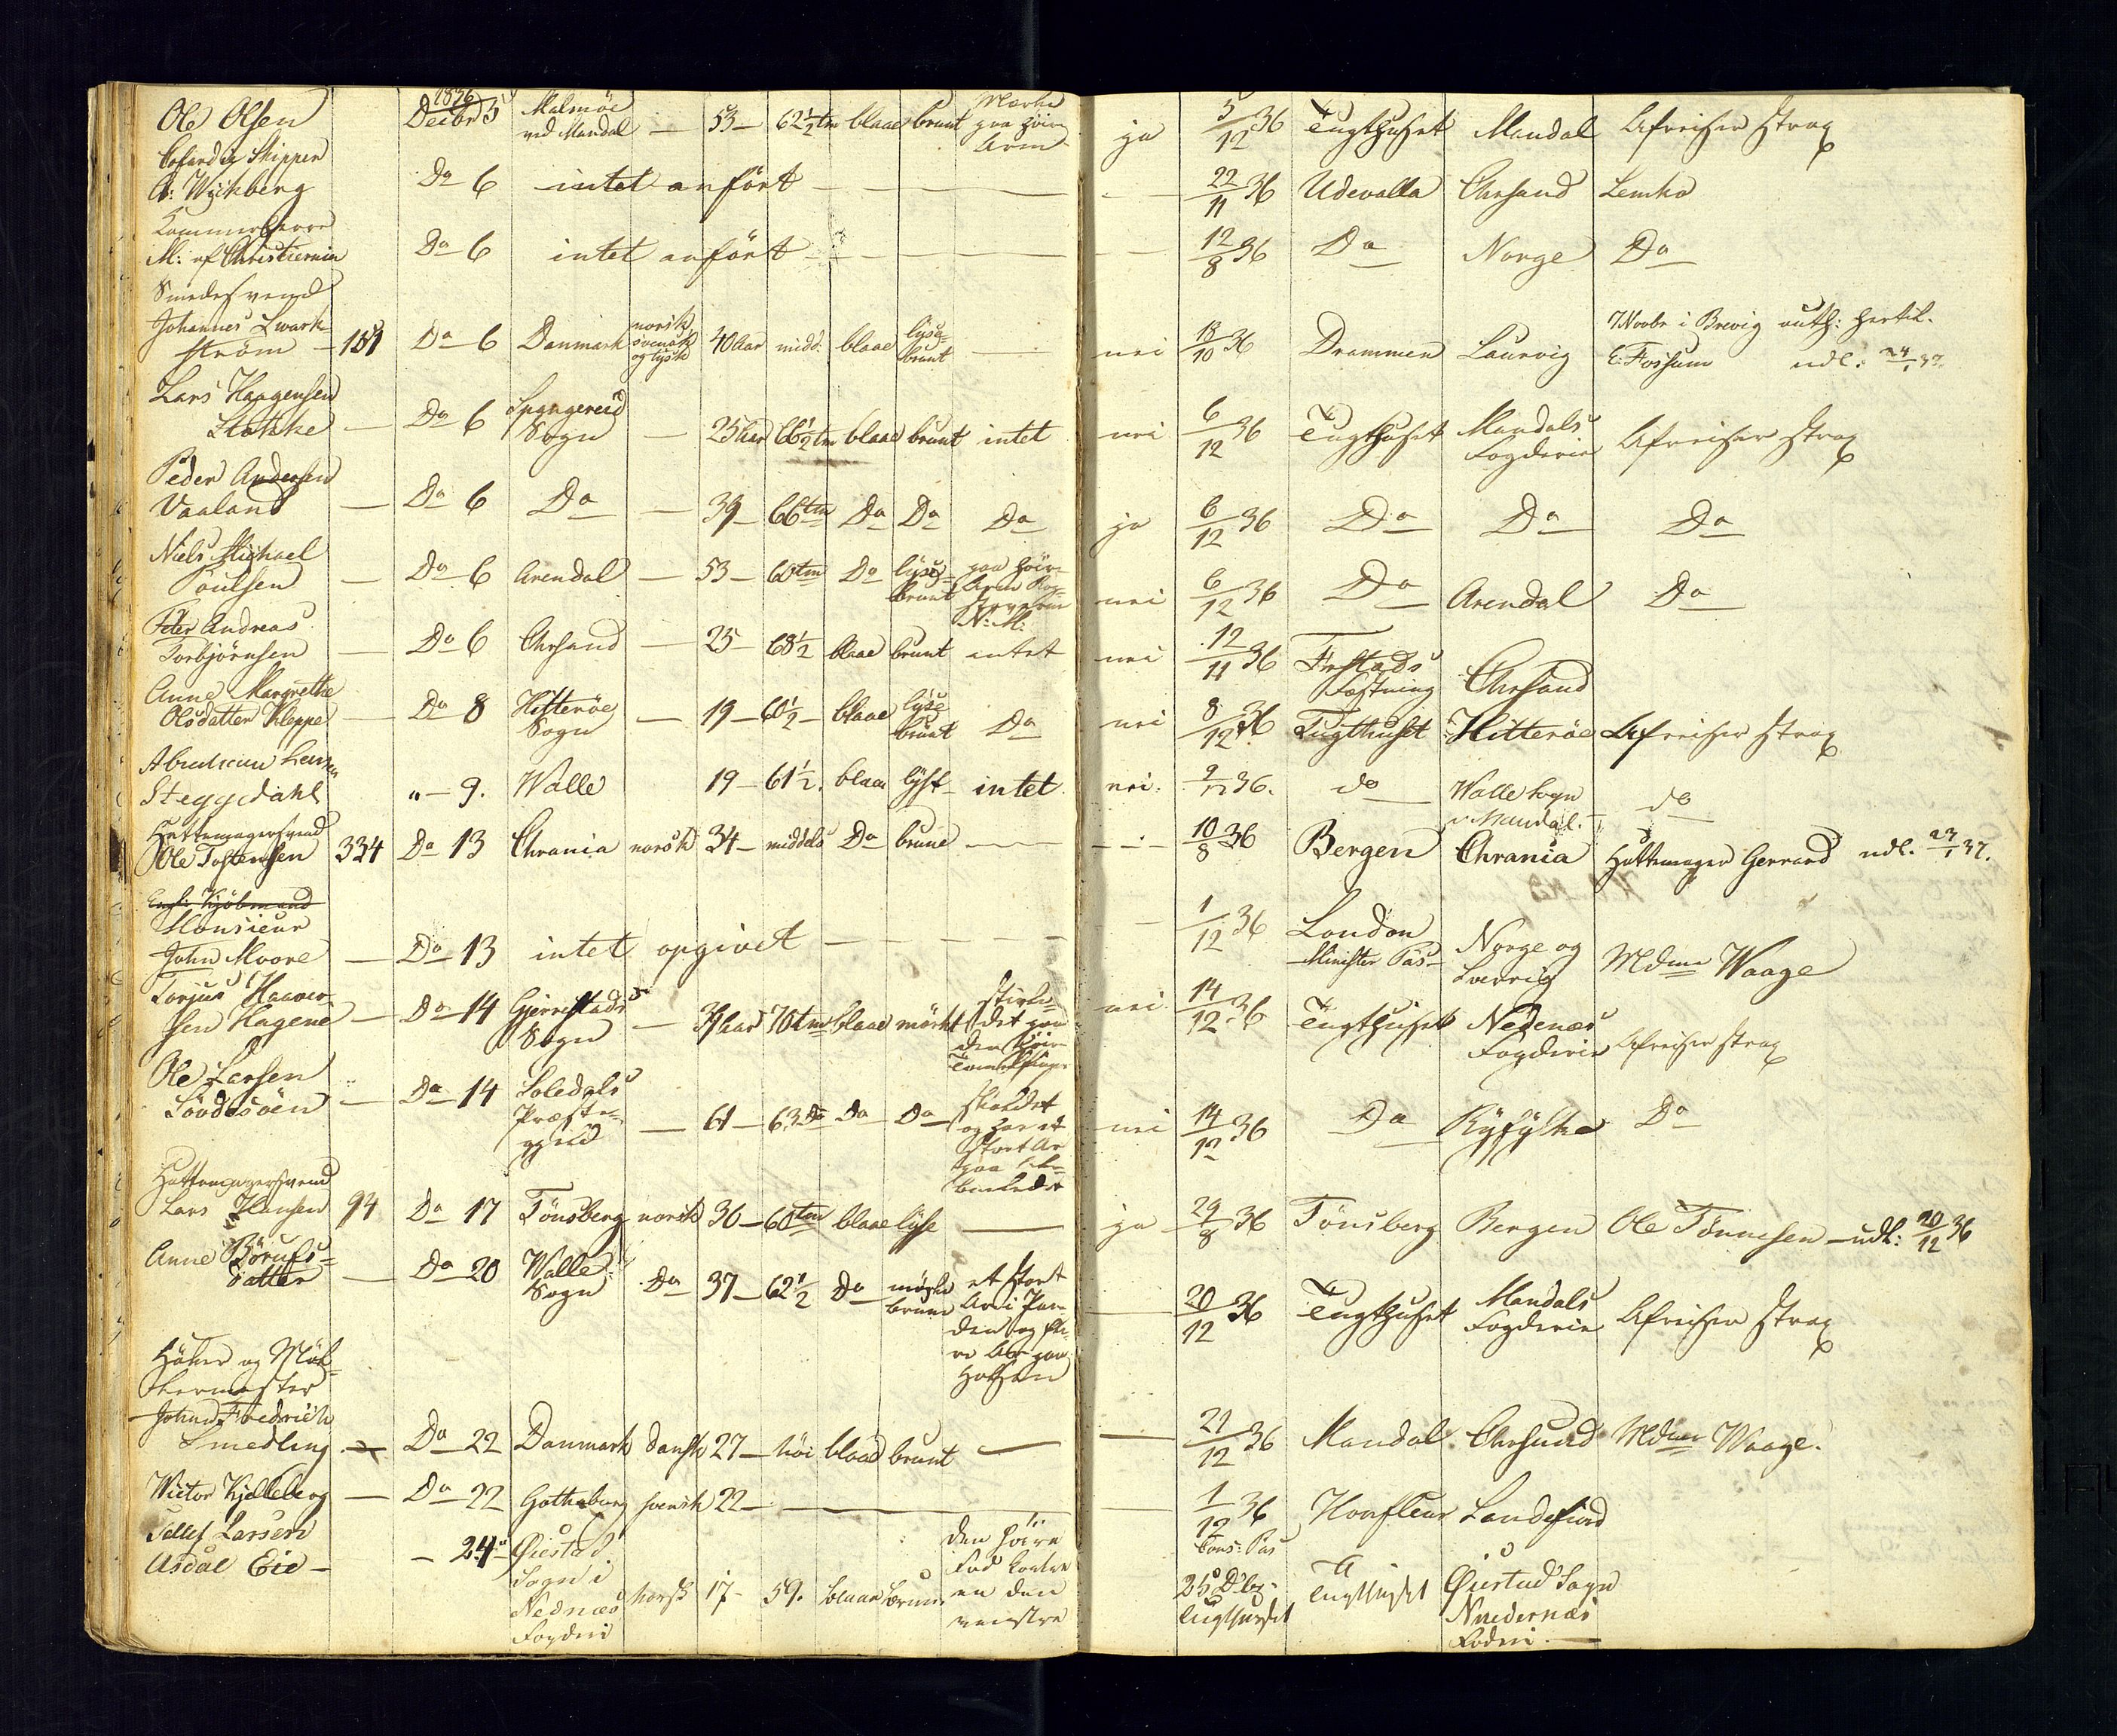 Ole Olsen 1836 Decbr 5 Malmöe ved Mandal — 53 — 62½ tm blaae brunt Mærke paa höire Arm ja 5/12 36 Tugthuset Mandal Afreiser strax
Skipper
Wichberg Do 6 intet anfört — 22/11 36 Udevalla Chrsand Lemke
Kammerherre
M: af Christiernin Do 6 intet anfört — 12/8 36 Do Norge Do
Smedesvend
Johannes Qwark-
ström — 101 Do 6 Danmark norsk svensk og tysk 40 Aar midd: blaae lyse-brunt — nei 18/10 36 Drammen Laurvig 7 Novbr i Brevig auth: hertil.
E: Fossum udl: 24/1 37.
Lars Haagensen
Stokke — Do 6 Spangereid Sogn — 25 Aar 66½ tm blaae brunt intet nei 6/12 36 Tugthuset Mandals Fogderie Afreiser strax
Peder Andersen
Vaaland — Do 6 Do — 39 — 66 tm Do Do Do ja 6/12 36 Do Do Do
Niels Michael
Poulsen — Do 6 Arendal — 53 — 60 tm Do lyse-brunt paa höire Arm N: M: nei 6/12 36 Do Arendal Do
Peter Andreas
Torbjörnsen — Do 6 Chrsand — 25 — 68½ blaae brunt intet nei 12/11 36 Frstads Fæstning Chrsand
Anne Margrethe
Olsdatter Kleppe — Do 8 Hitteröe Sogn — 19 — 60½ — blaae lyse brunt Do nei 8/12 36 Tugthuset Hitteröe Afreiser strax
Abraham Larsen
Steggedahl " — 9. Walle 19 — 61½. blaae lyst intet nei. 9/12 36. do Walle Sogn v. Mandal. do
Hattemagersvend
Ole Tostensen 334 Do 13 Chrania norsk 34 — middels Do brune — — 10/8 36 Bergen Chrania Hattemager Gerrard udl. 23/1 37.
Engl: Kjöbmand
Monsieur
John Moore — Do 13 intet opgivet — 1/12 36 London Minister Pas Norge og Sverrig Mdme Waage
Torjus Haaver-
sen Hagene — Do 14 Gjerrestads Sogn — 39 Aar 70 tm blaae mörkt nei 14/12 36 Tugthuset Nedenæs Fogderie Afreiser strax
Ole Larsen
Do 14 Præste-gjeld — 61 — 63 Do Do Do — skaldet og har et stort Ar paa nei 14/12 36 Do Ryfylke Do
Hattemagersvend
Lars Hansen 94 Do 17 Tönsberg norsk 36 — 60 tm blaae lyse — ja 29/8 36 Tönsberg Bergen Ole Tönnesen — udl: 20/12 36
Anne Börufs-
datter — Do 20 Walle Sogn Do 37 — 62½ Do mörke brune et stort Ar i Pan-den og fle-re Ar paa Halsen — 20/12 36 Tugthuset Mandals Fogderie Afreiser strax
Höker og
Johan Fredrich
Smedling Do 22 Danmark dansk 27 — höi blaae brunt — — 21/12 36 Mandal Chrsand Mdme Waage.
Victor Kjelleberg — Do 22 Gothaborg svensk 22 — — 1/12 36 Cons: Pas Honfleur Sandefiord
Tellef Larsen
Asdal Eie — — 24 Øiestad Sogn i Nednæs Fogderi norsk 17 — 59. blaae brune den höire Fod kortere en den venstre Tugthuset Tugthuset Øiestad Sogn